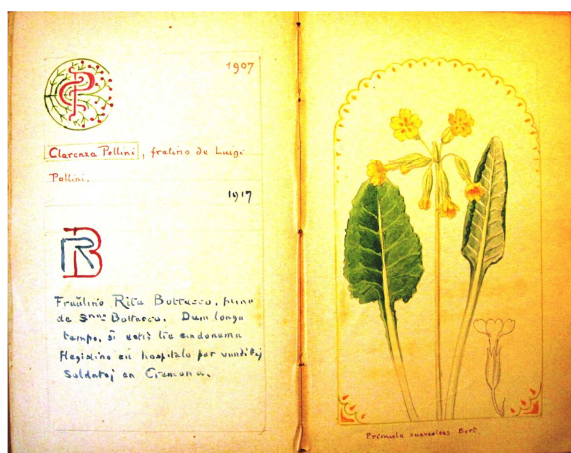 1907
CP
Clarenza Pollini, fratino de Luigi
Pollini.
1917
RB
Fraŭlino Rita Bottasso,
de S.no Bottasso. Dum longa
tempo, ŝi estis tie sindonema
flegistino en hospitalo por vunditaj
Soldatoj en Cremona.
Primula suaveolens Bert.